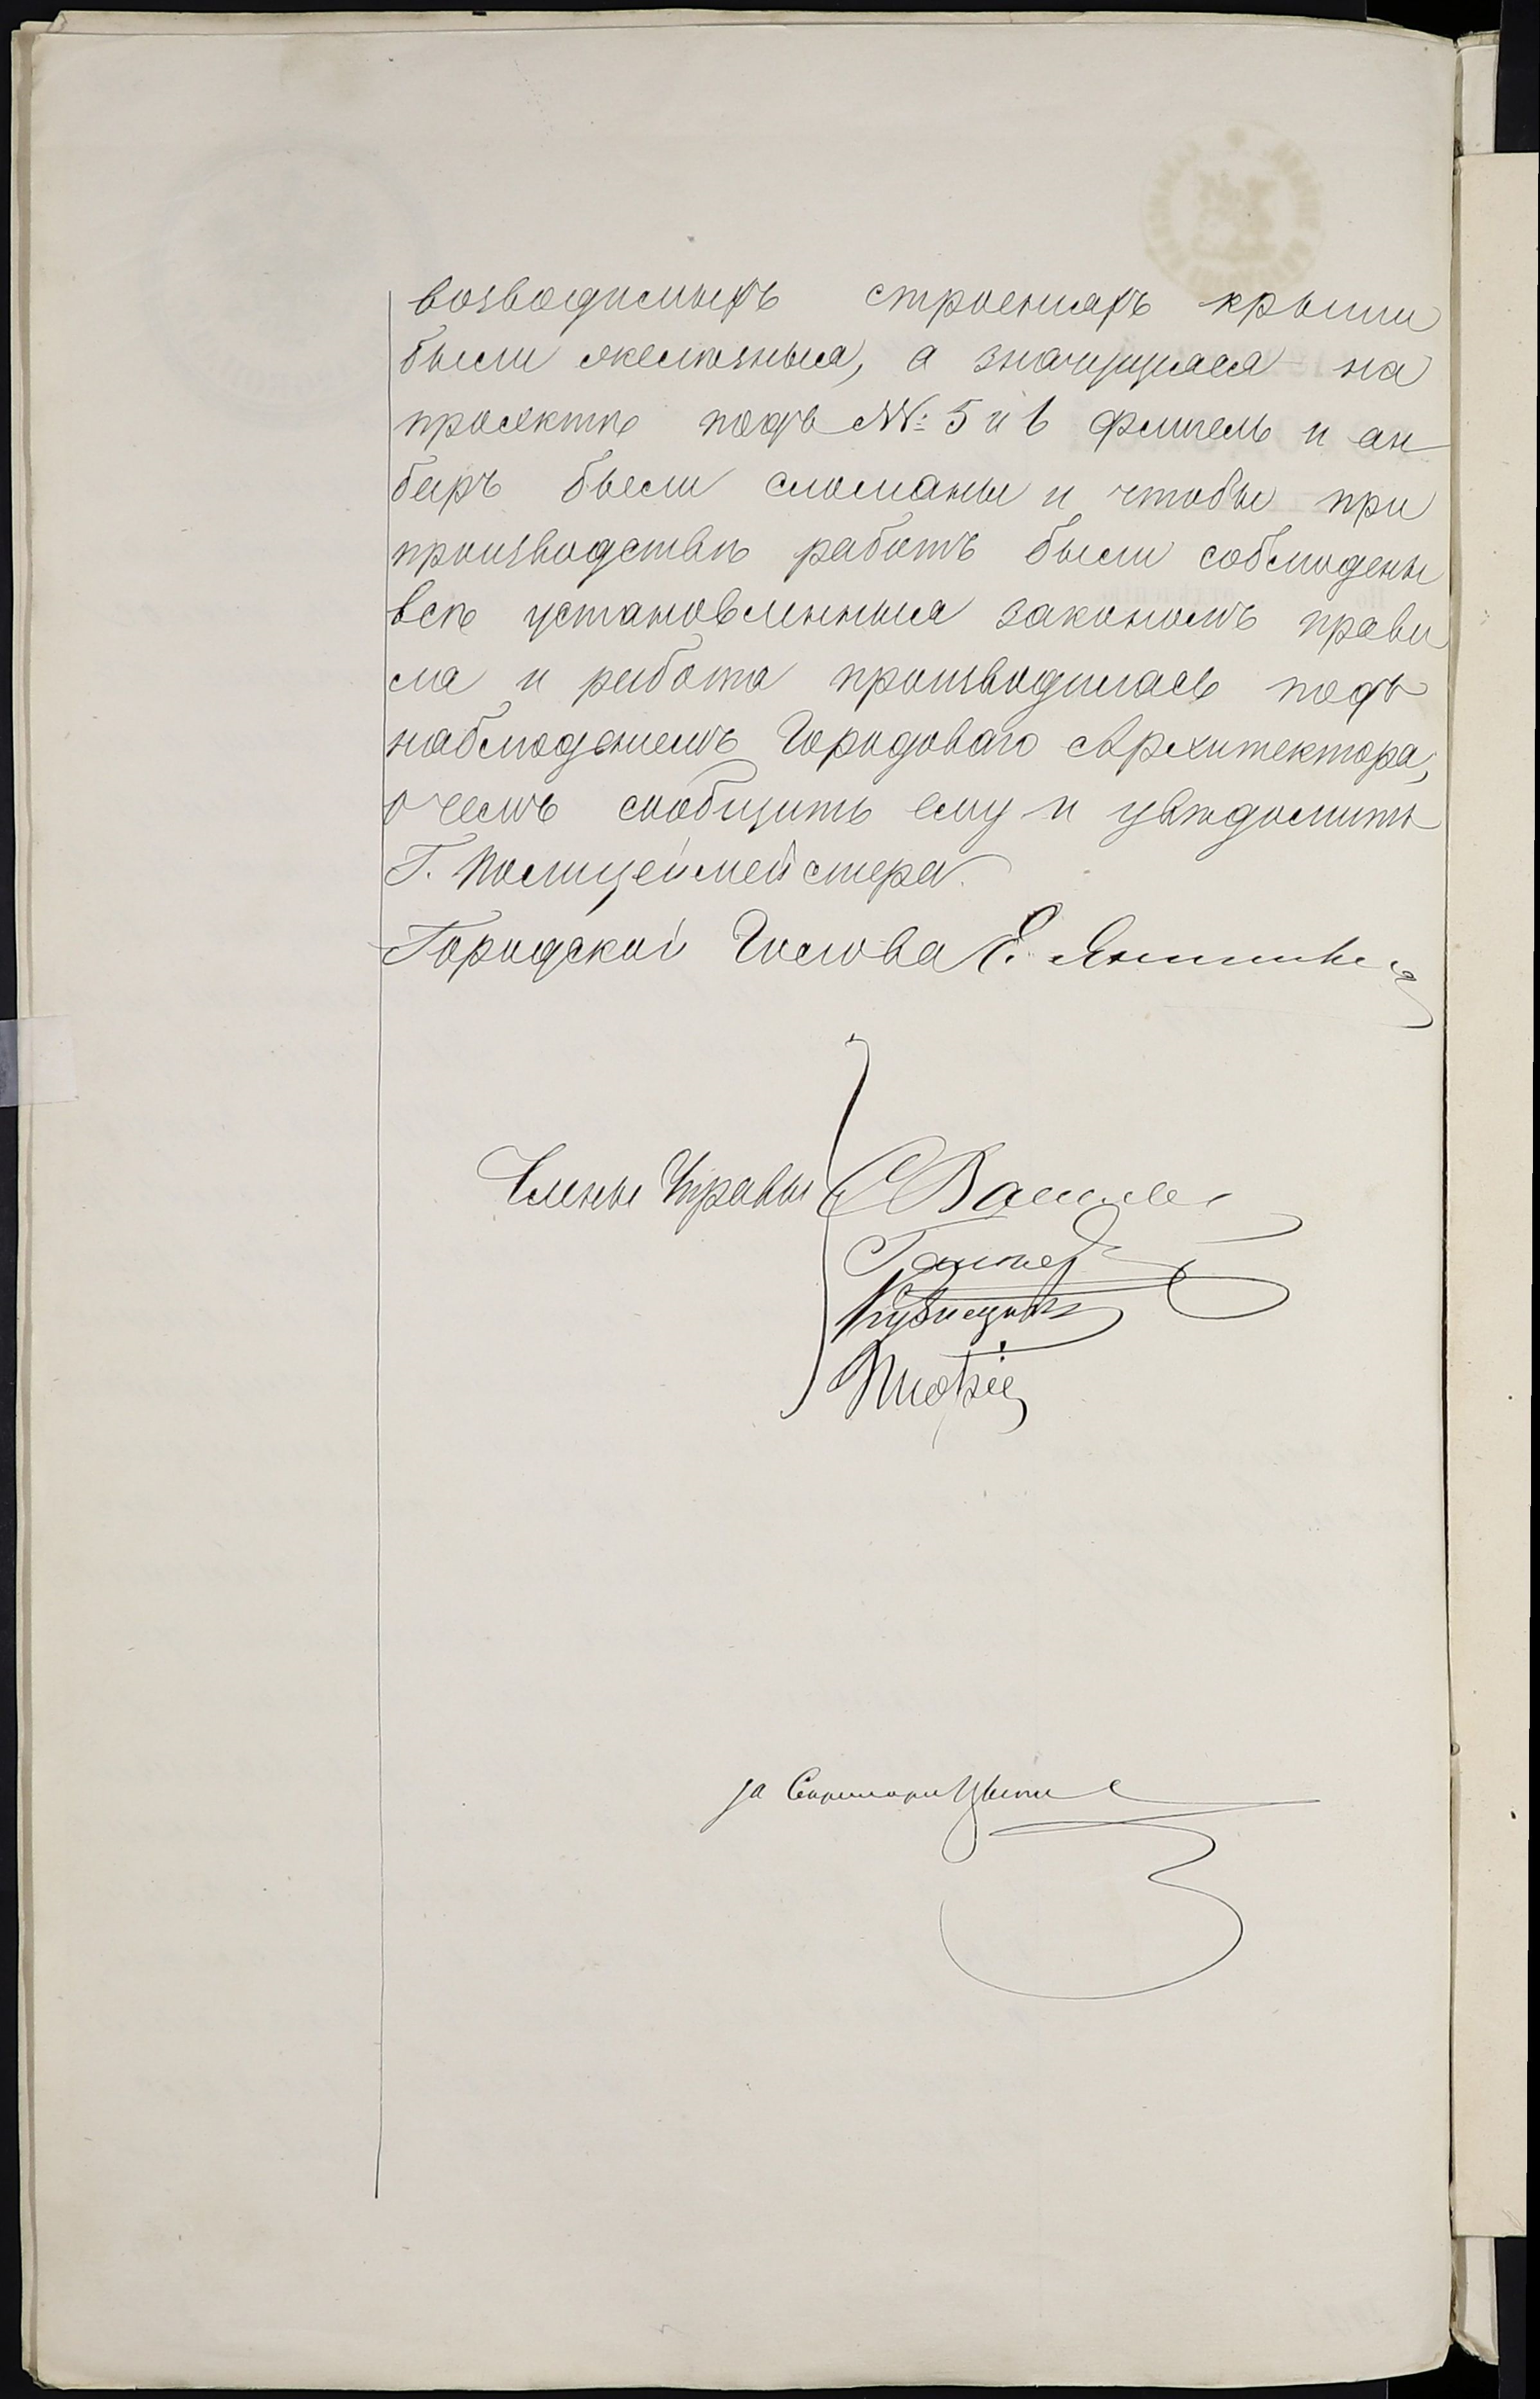 возводимыхъ строенiяхъ крыши
были желѣзныя, а значущiяся на
проектѣ подъ №: 5 и 6 флигель и ан
баръ были сломаны и чтобы при
производствѣ работъ были соблюдены
всѣ установленныя закономъ прави
ла и работа производилась подъ
наблюденiемъ Городоваго Архитектора,
о чемъ сообщить ему и увѣдомить
Г. Полицеймейстера.
Городской Голова Е.
Члены Управы
Кузнецовъ
за Секретаря